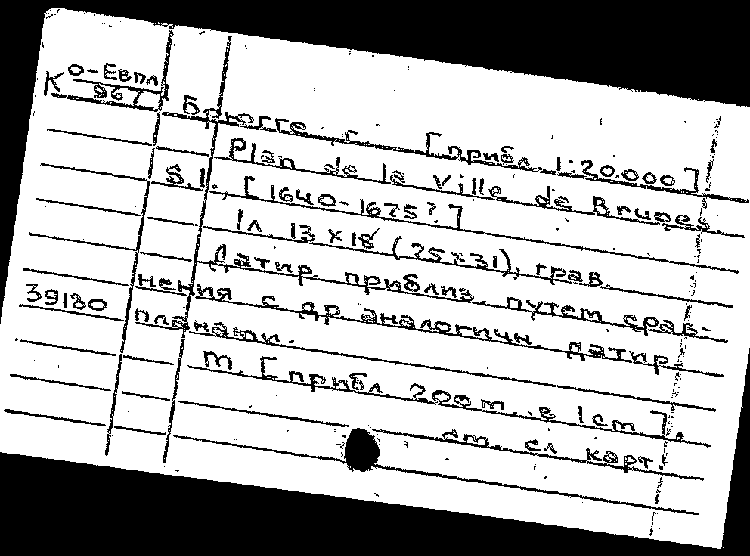 К О-Евпл
967
Брюгге, г. [прибл. 1:20.000]
Plan de la Ville de Bruges.
S.l., [1640-1675?]
1 л. 13 х 18 (25х31), грав.
Датир. приблиз. путем срав-
нения с др. аналогичн. датир.
39180 планами.
М. [прибл. 200 m. в 1 cm].
см. сл. карт.